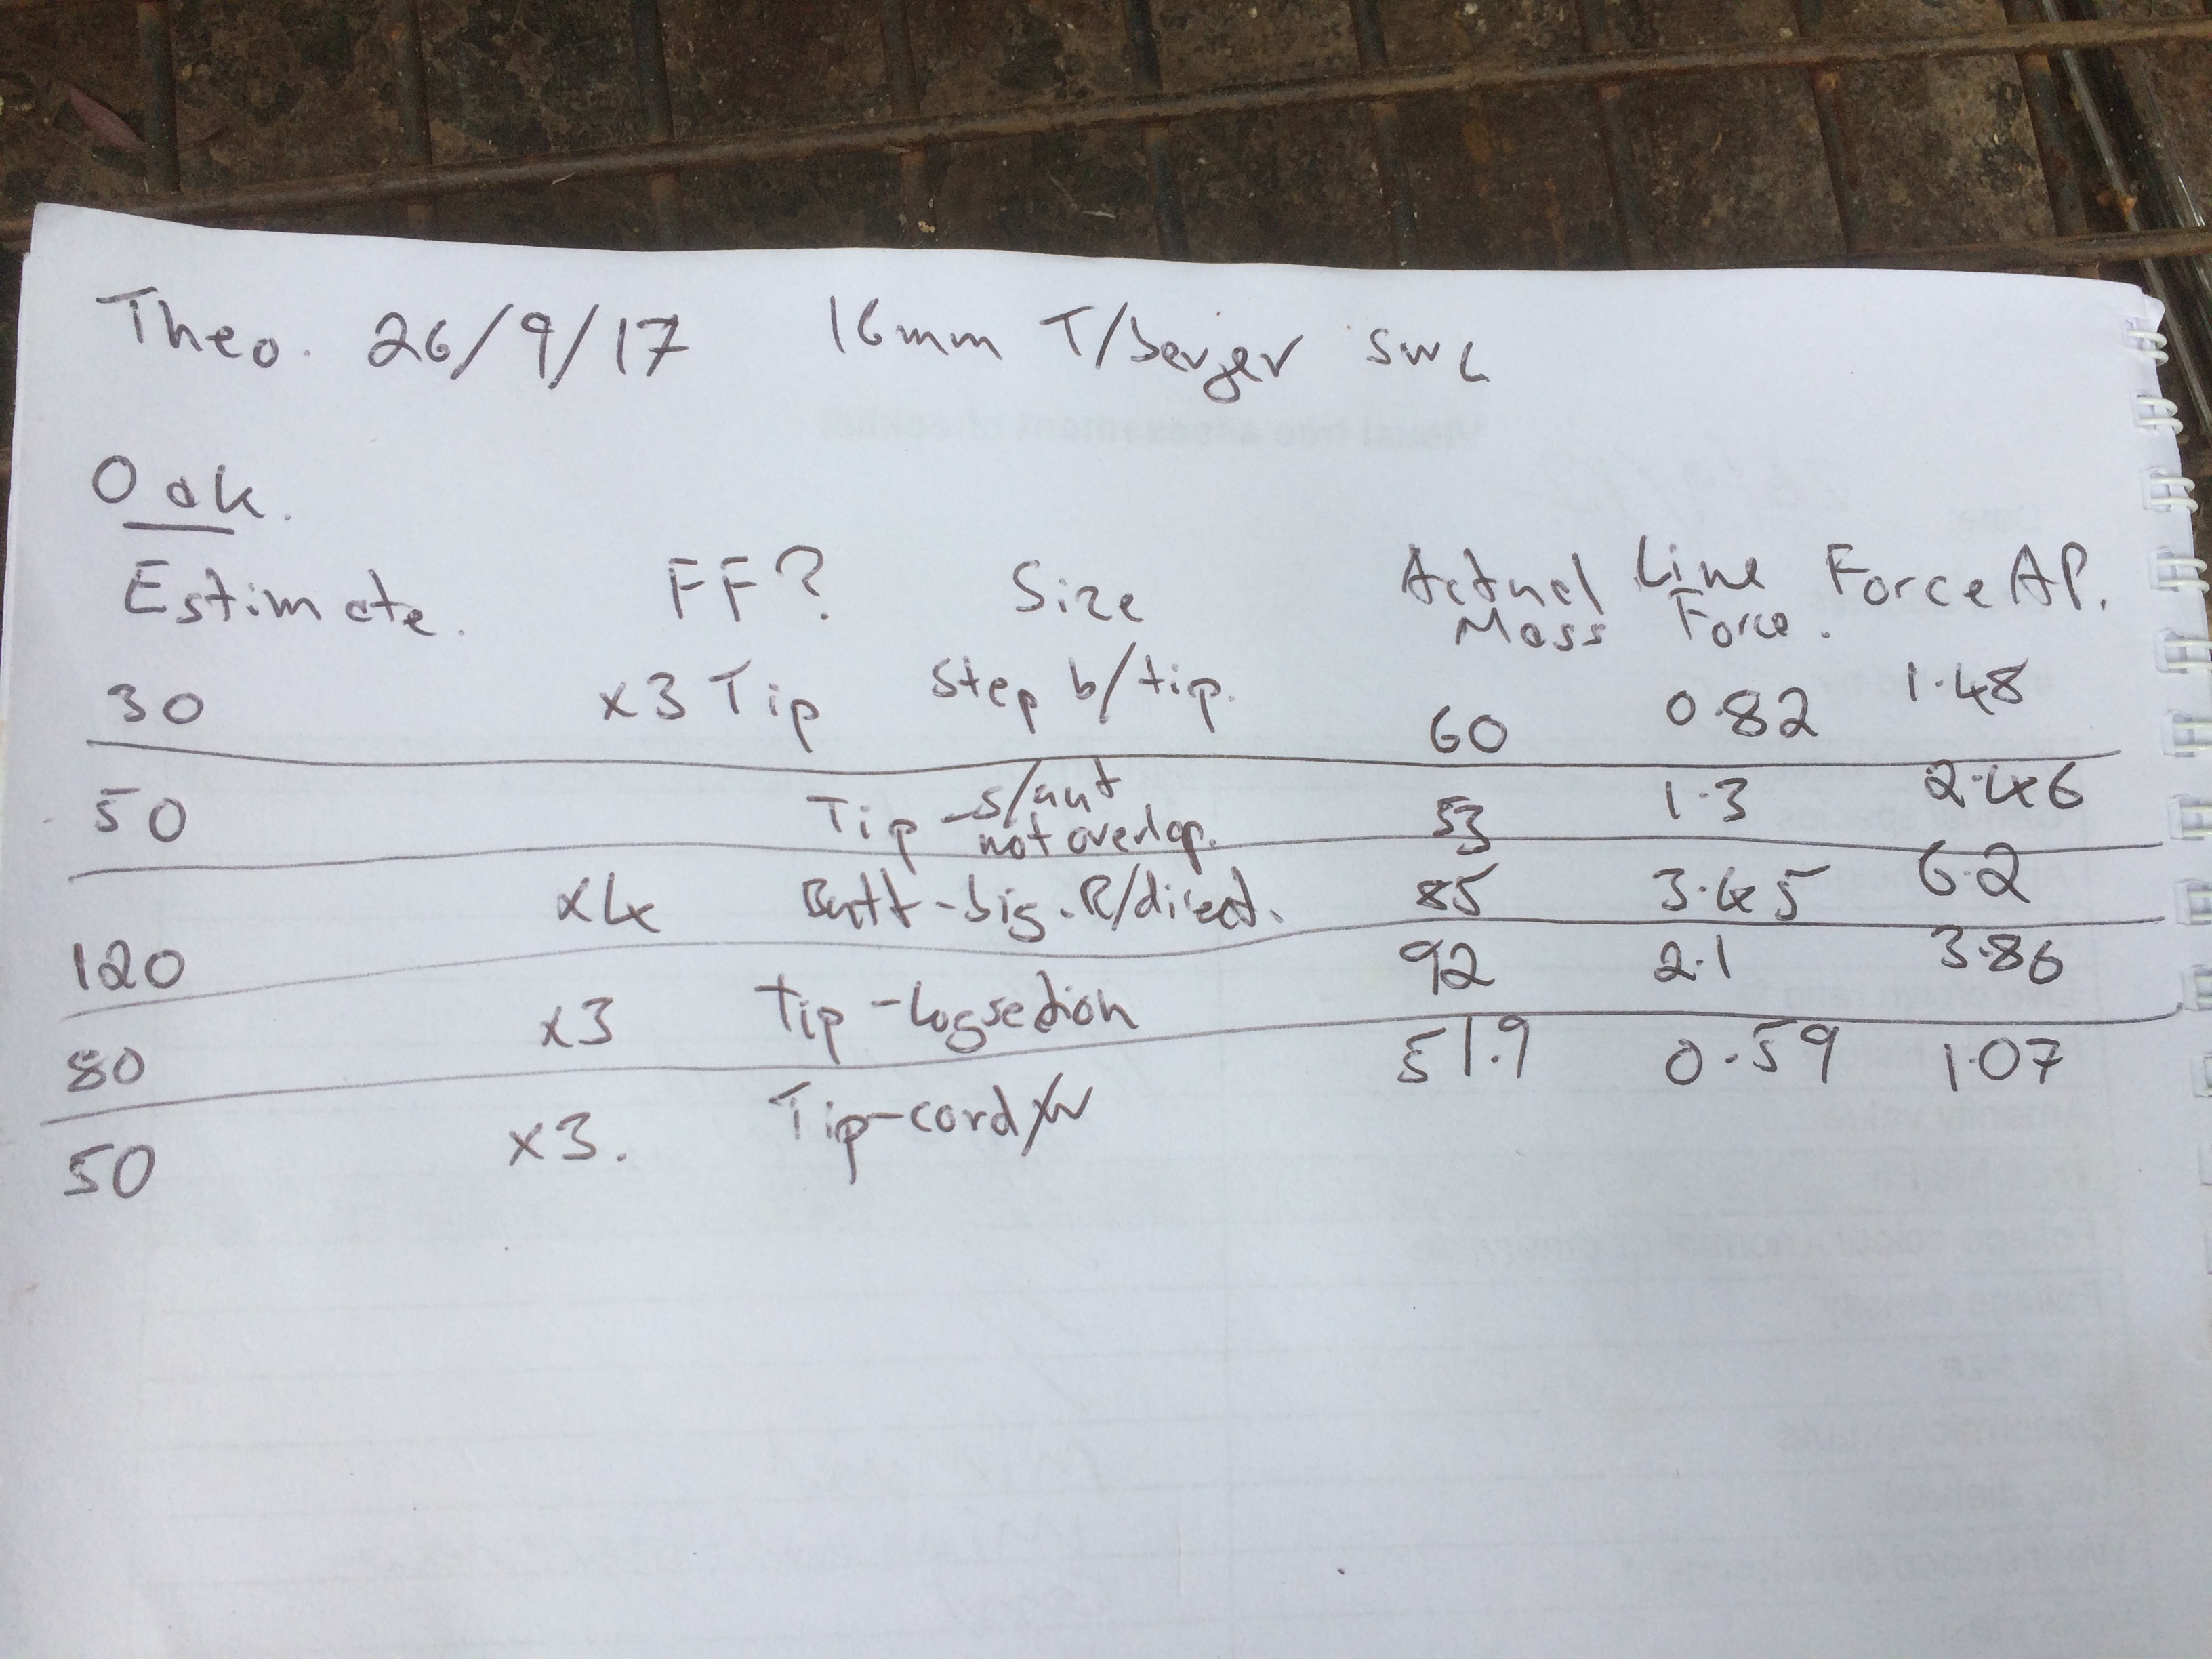 Theo. 26/9/17 16mm T/berger SWL
Oak.
Estimate. FF? Size Actual Mass Line Force. Force AP.
30 x3 Tip Step b/tip. 60 0.82 1.48
50 Tip - s/aut not overlap. 53 1.3 2.46
120 x4 Butt-big. R/direct. 85 3.45 6.2
80 x3 Tip - Log section 92 2.1 3.86
50 x3. Tip-cord/w 51.9 0.59 1.07